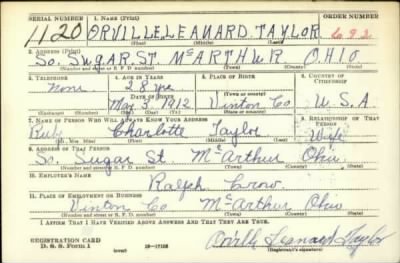 SERIAL NUMBER 1. NAME (Print) ORDER NUMBER
1120 ORVILLE LEANARD TAYLOR 692
(First) (Middle) (Last)
2. ADDRESS (Print)
So. SUGAR. ST. McARTHUR OHIO
(Number and street or R. F. D. number) (Town) (County) (State)
3. TELEPHONE 4. AGE IN YEARS 5. PLACE OF BIRTH 6. COUNTRY OF CITIZENSHIP
None 28 yrs. Vinton Co.
DATE OF BIRTH
Mar 3 1912 Ohio U.S.A.
(Exchange) (Number) (Mo.) (Day) (Yr.) (State or country)
7. NAME OF PERSON WHO WILL ALWAYS KNOW YOUR ADDRESS 8. RELATIONSHIP OF THAT PERSON
Ruby Charlotte Taylor Wife
(Mr., Mrs., Miss) (First) (Middle) (Last)
9. ADDRESS OF THAT PERSON
So. Sugar St. McArthur Ohio
(Number and street or R. F. D. number) (Town) (County) (State)
10. EMPLOYER'S NAME
Ralph Crow.
11. PLACE OF EMPLOYMENT OR BUSINESS
Vinton Co McArthur Ohio
(Number and street or R. F. D. number) (Town) (County) (State)
I AFFIRM THAT I HAVE VERIFIED ABOVE ANSWERS AND THAT THEY ARE TRUE.
REGISTRATION CARD
D. S. S. Form 1 (over) Orville Leanard Taylor
(Registrant's signature)